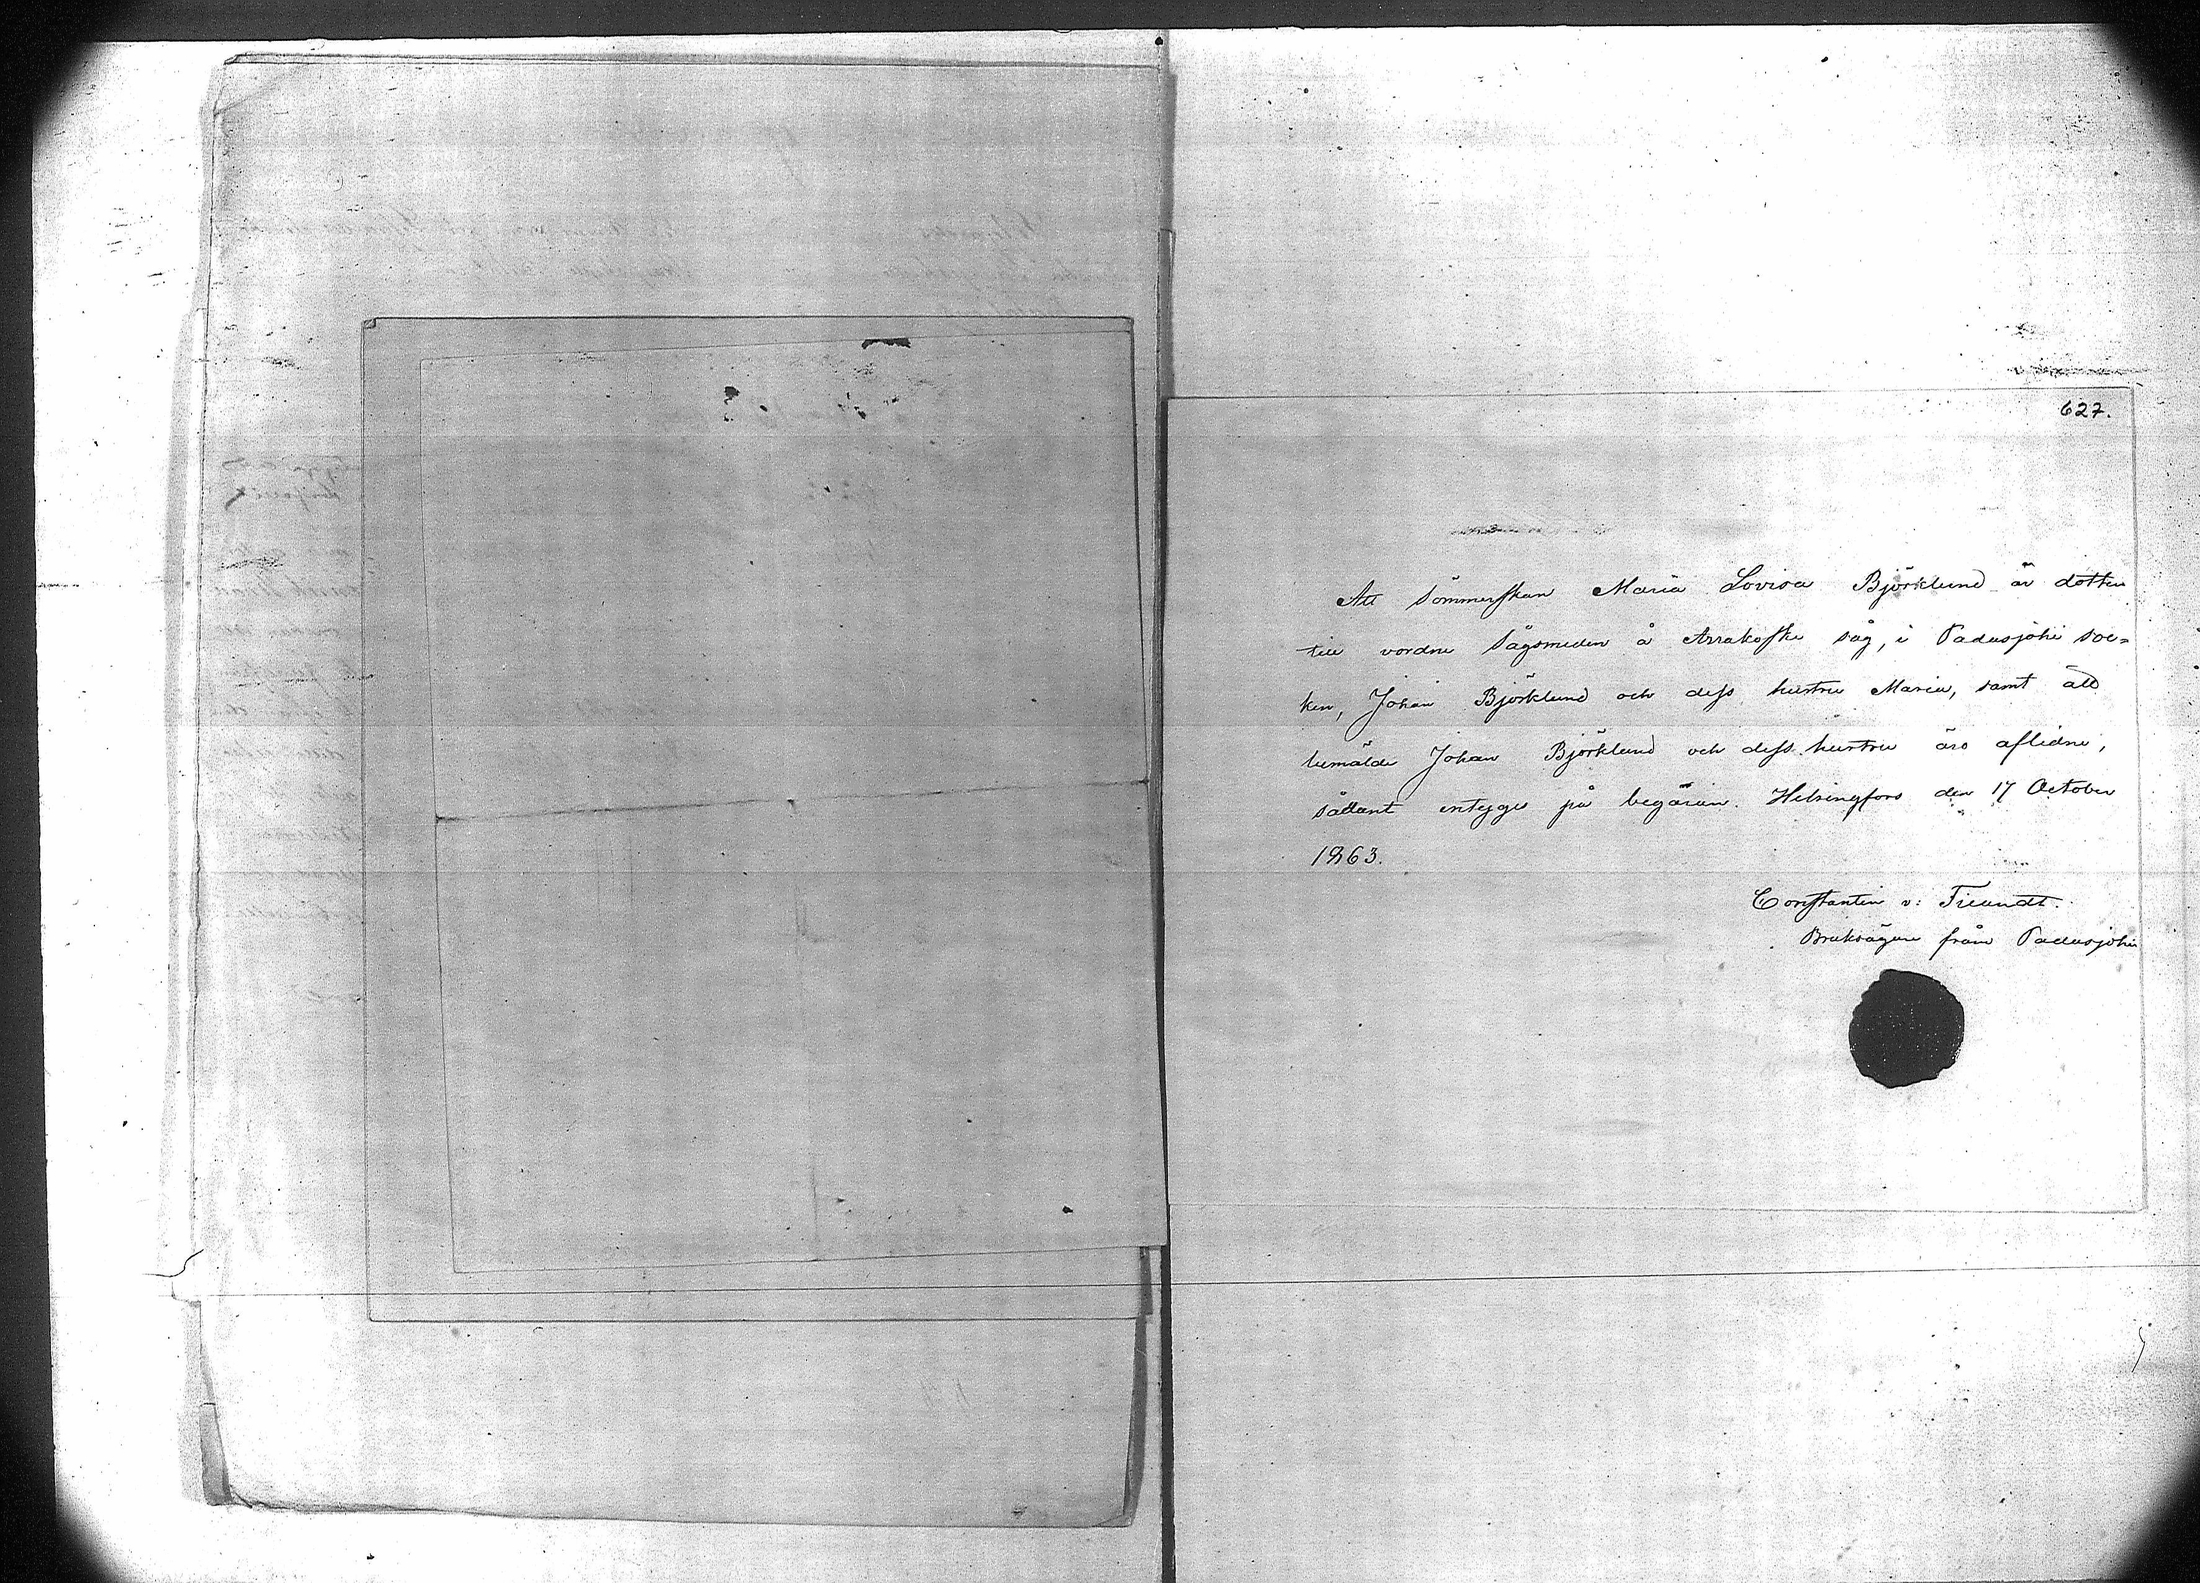 627.
Att Sömmerskan Maria Lovisa Björklund är dotter
till vordne Sågsmeden å Arrakoski såg, i Padasjoki soc=
ken, Johan Björklund och dess hustru Maria, samt att
bemälde Johan Björklund och dess hustru äro aflidne,
sådant intygges på begäran. Helsingfors den 17 October
1863.
Constantin v:
Bruksägare från Padasjoki